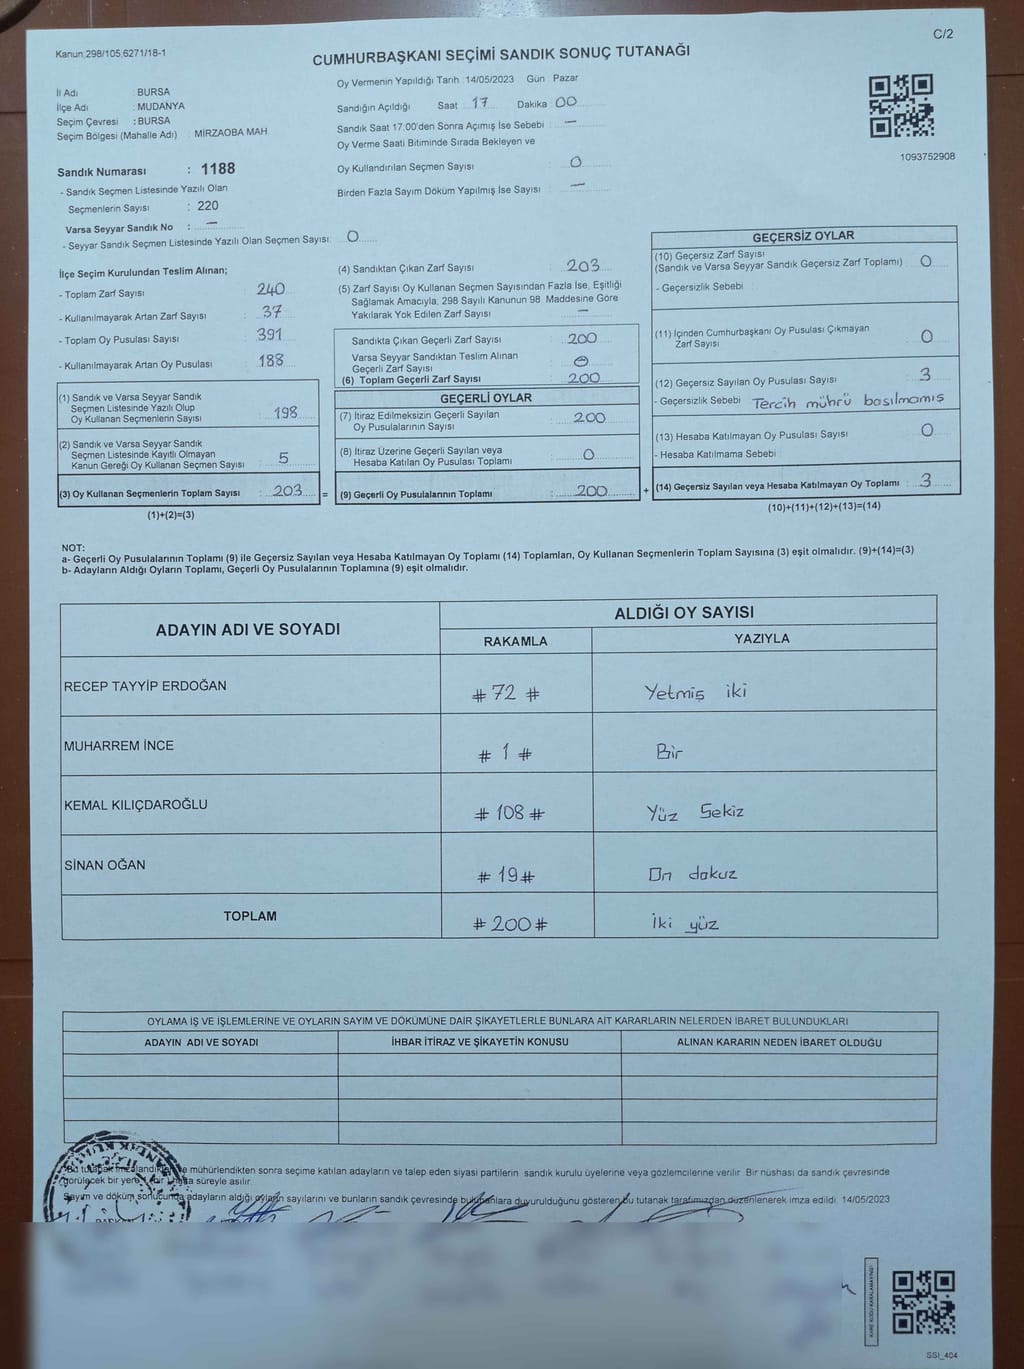 Kanun;298/105,6271/18-1
C/2
CUMHURBAŞKANI SEÇİMİ SANDIK SONUÇ TUTANAĞI
Oy Vermenin Yapıldığı Tarih 14/05/2023 Gün Pazar
İl Adı : BURSA
İlçe Adı : MUDANYA
Seçim Çevresi : BURSA
Seçim Bölgesi (Mahalle Adı) : MİRZAOBA MAH.
Sandığın Açıldığı Saat 17 Dakika 00
Sandık Saat 17:00'den Sonra Açımış İse Sebebi : —
Oy Verme Saati Bitiminde Sırada Bekleyen ve
Oy Kullandırılan Seçmen Sayısı : 0
Birden Fazla Sayım Döküm Yapılmış İse Sayısı : —
1093752908
Sandık Numarası : 1188
- Sandık Seçmen Listesinde Yazılı Olan
Seçmenlerin Sayısı : 220
Varsa Seyyar Sandık No : —
- Seyyar Sandık Seçmen Listesinde Yazılı Olan Seçmen Sayısı: 0
İlçe Seçim Kurulundan Teslim Alınan;
- Toplam Zarf Sayısı : 240
- Kullanılmayarak Artan Zarf Sayısı : 37
- Toplam Oy Pusulası Sayısı : 391
- Kullanılmayarak Artan Oy Pusulası : 188
(1) Sandık ve Varsa Seyyar Sandık
Seçmen Listesinde Yazılı Olup
Oy Kullanan Seçmenlerin Sayısı : 198
(2) Sandık ve Varsa Seyyar Sandık
Seçmen Listesinde Kayıtlı Olmayan
Kanun Gereği Oy Kullanan Seçmen Sayısı : 5
(3) Oy Kullanan Seçmenlerin Toplam Sayısı : 203 =
(1)+(2)=(3)
(4) Sandıktan Çıkan Zarf Sayısı : 203
(5) Zarf Sayısı Oy Kullanan Seçmen Sayısından Fazla İse, Eşitliği
Sağlamak Amacıyla, 298 Sayılı Kanunun 98. Maddesine Göre
Yakılarak Yok Edilen Zarf Sayısı : —
Sandıkta Çıkan Geçerli Zarf Sayısı : 200
Varsa Seyyar Sandıktan Teslim Alınan
Geçerli Zarf Sayısı : 0
(6) Toplam Geçerli Zarf Sayısı : 200
GEÇERLİ OYLAR
(7) İtiraz Edilmeksizin Geçerli Sayılan
Oy Pusulalarının Sayısı : 200
(8) İtiraz Üzerine Geçerli Sayılan veya
Hesaba Katılan Oy Pusulası Toplamı : 0
(9) Geçerli Oy Pusulalarının Toplamı : 200 +
GEÇERSİZ OYLAR
(10) Geçersiz Zarf Sayısı
(Sandık ve Varsa Seyyar Sandık Geçersiz Zarf Toplamı) : 0
- Geçersizlik Sebebi :
(11) İçinden Cumhurbaşkanı Oy Pusulası Çıkmayan
Zarf Sayısı : 0
(12) Geçersiz Sayılan Oy Pusulası Sayısı : 3
- Geçersizlik Sebebi : Tercih mührü basılmamış
(13) Hesaba Katılmayan Oy Pusulası Sayısı : 0
- Hesaba Katılmama Sebebi :
(14) Geçersiz Sayılan veya Hesaba Katılmayan Oy Toplamı : 3
(10)+(11)+(12)+(13)=(14)
NOT:
a- Geçerli Oy Pusulalarının Toplamı (9) ile Geçersiz Sayılan veya Hesaba Katılmayan Oy Toplamı (14) Toplamları, Oy Kullanan Seçmenlerin Toplam Sayısına (3) eşit olmalıdır. (9)+(14)=(3)
b- Adayların Aldığı Oyların Toplamı, Geçerli Oy Pusulalarının Toplamına (9) eşit olmalıdır.
ADAYIN ADI VE SOYADI
ALDIĞI OY SAYISI
RAKAMLA YAZIYLA
RECEP TAYYİP ERDOĞAN # 72 # Yetmiş iki
MUHARREM İNCE # 1 # Bir
KEMAL KILIÇDAROĞLU # 108 # Yüz Sekiz
SİNAN OĞAN # 19 # On dokuz
TOPLAM # 200 # İki yüz
OYLAMA İŞ VE İŞLEMLERİNE VE OYLARIN SAYIM VE DÖKÜMÜNE DAİR ŞİKAYETLERLE BUNLARA AİT KARARLARIN NELERDEN İBARET BULUNDUKLARI
ADAYIN ADI VE SOYADI İHBAR İTİRAZ VE ŞİKAYETİN KONUSU ALINAN KARARIN NEDEN İBARET OLDUĞU
Bu tutanak imzalandıktan ve mühürlendikten sonra seçime katılan adayların ve talep eden siyasi partilerin sandık kurulu üyelerine veya gözlemcilerine verilir. Bir nüshası da sandık çevresinde
görülecek bir yere 1 bir hafta süreyle asılır.
Sayım ve döküm sonucunda adayların aldığı oyların sayılarını ve bunların sandık çevresinde bulunanlara duyurulduğunu gösteren bu tutanak tarafımızdan düzenlenerek imza edildi. 14/05/2023
SSI_404